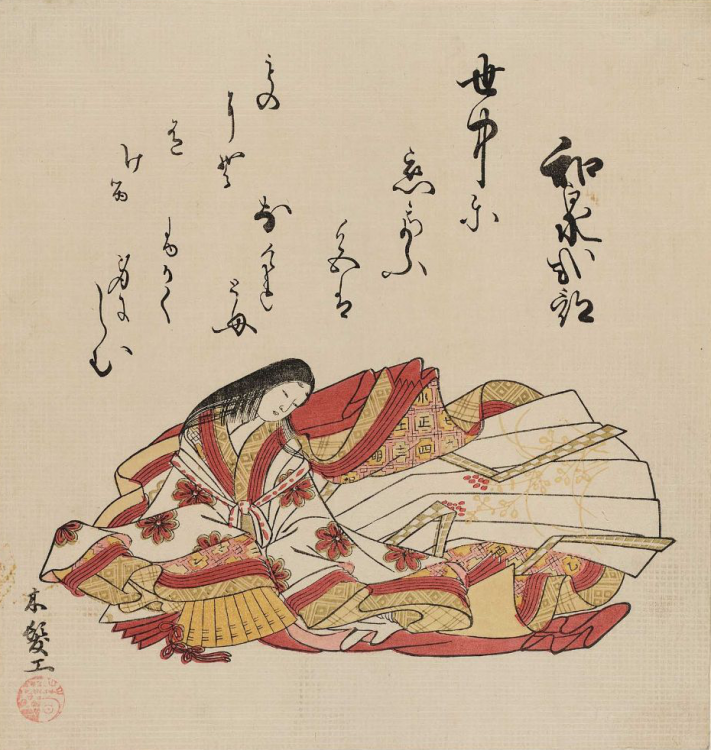 和泉式部
世中に
恋といふ
色は
なけれ
とも
ふかく
身に
しむ
もの
にそ
有
ける
木髪工